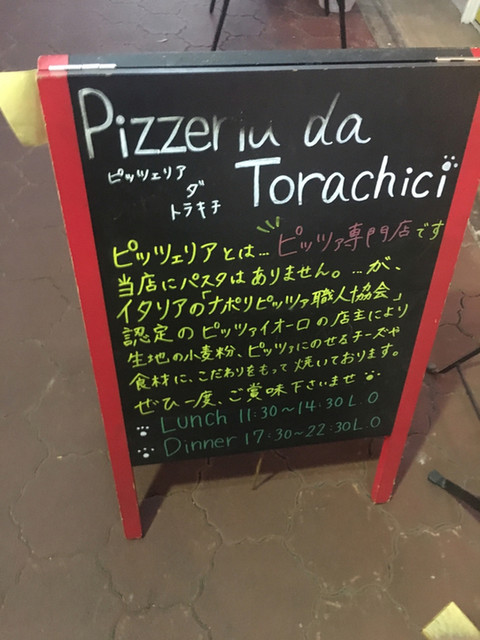 Pizzeria da
Torachici
ピッツェリア
ダ
トラキチ
ピッツェリアとは…ピッツァ専門店です
当店にパスタはありません。…が、
イタリアの「ナポリピッツァ職人協会」
認定のピッツァイオーロの店主により
生地の小麦粉、ピッツァにのせるチーズや
食材に、こだわりをもって焼いております。
ぜひ一度、ご賞味下さいませ
Lunch 11:30~14:30 L.O
Dinner 17:30~22:30 L.O